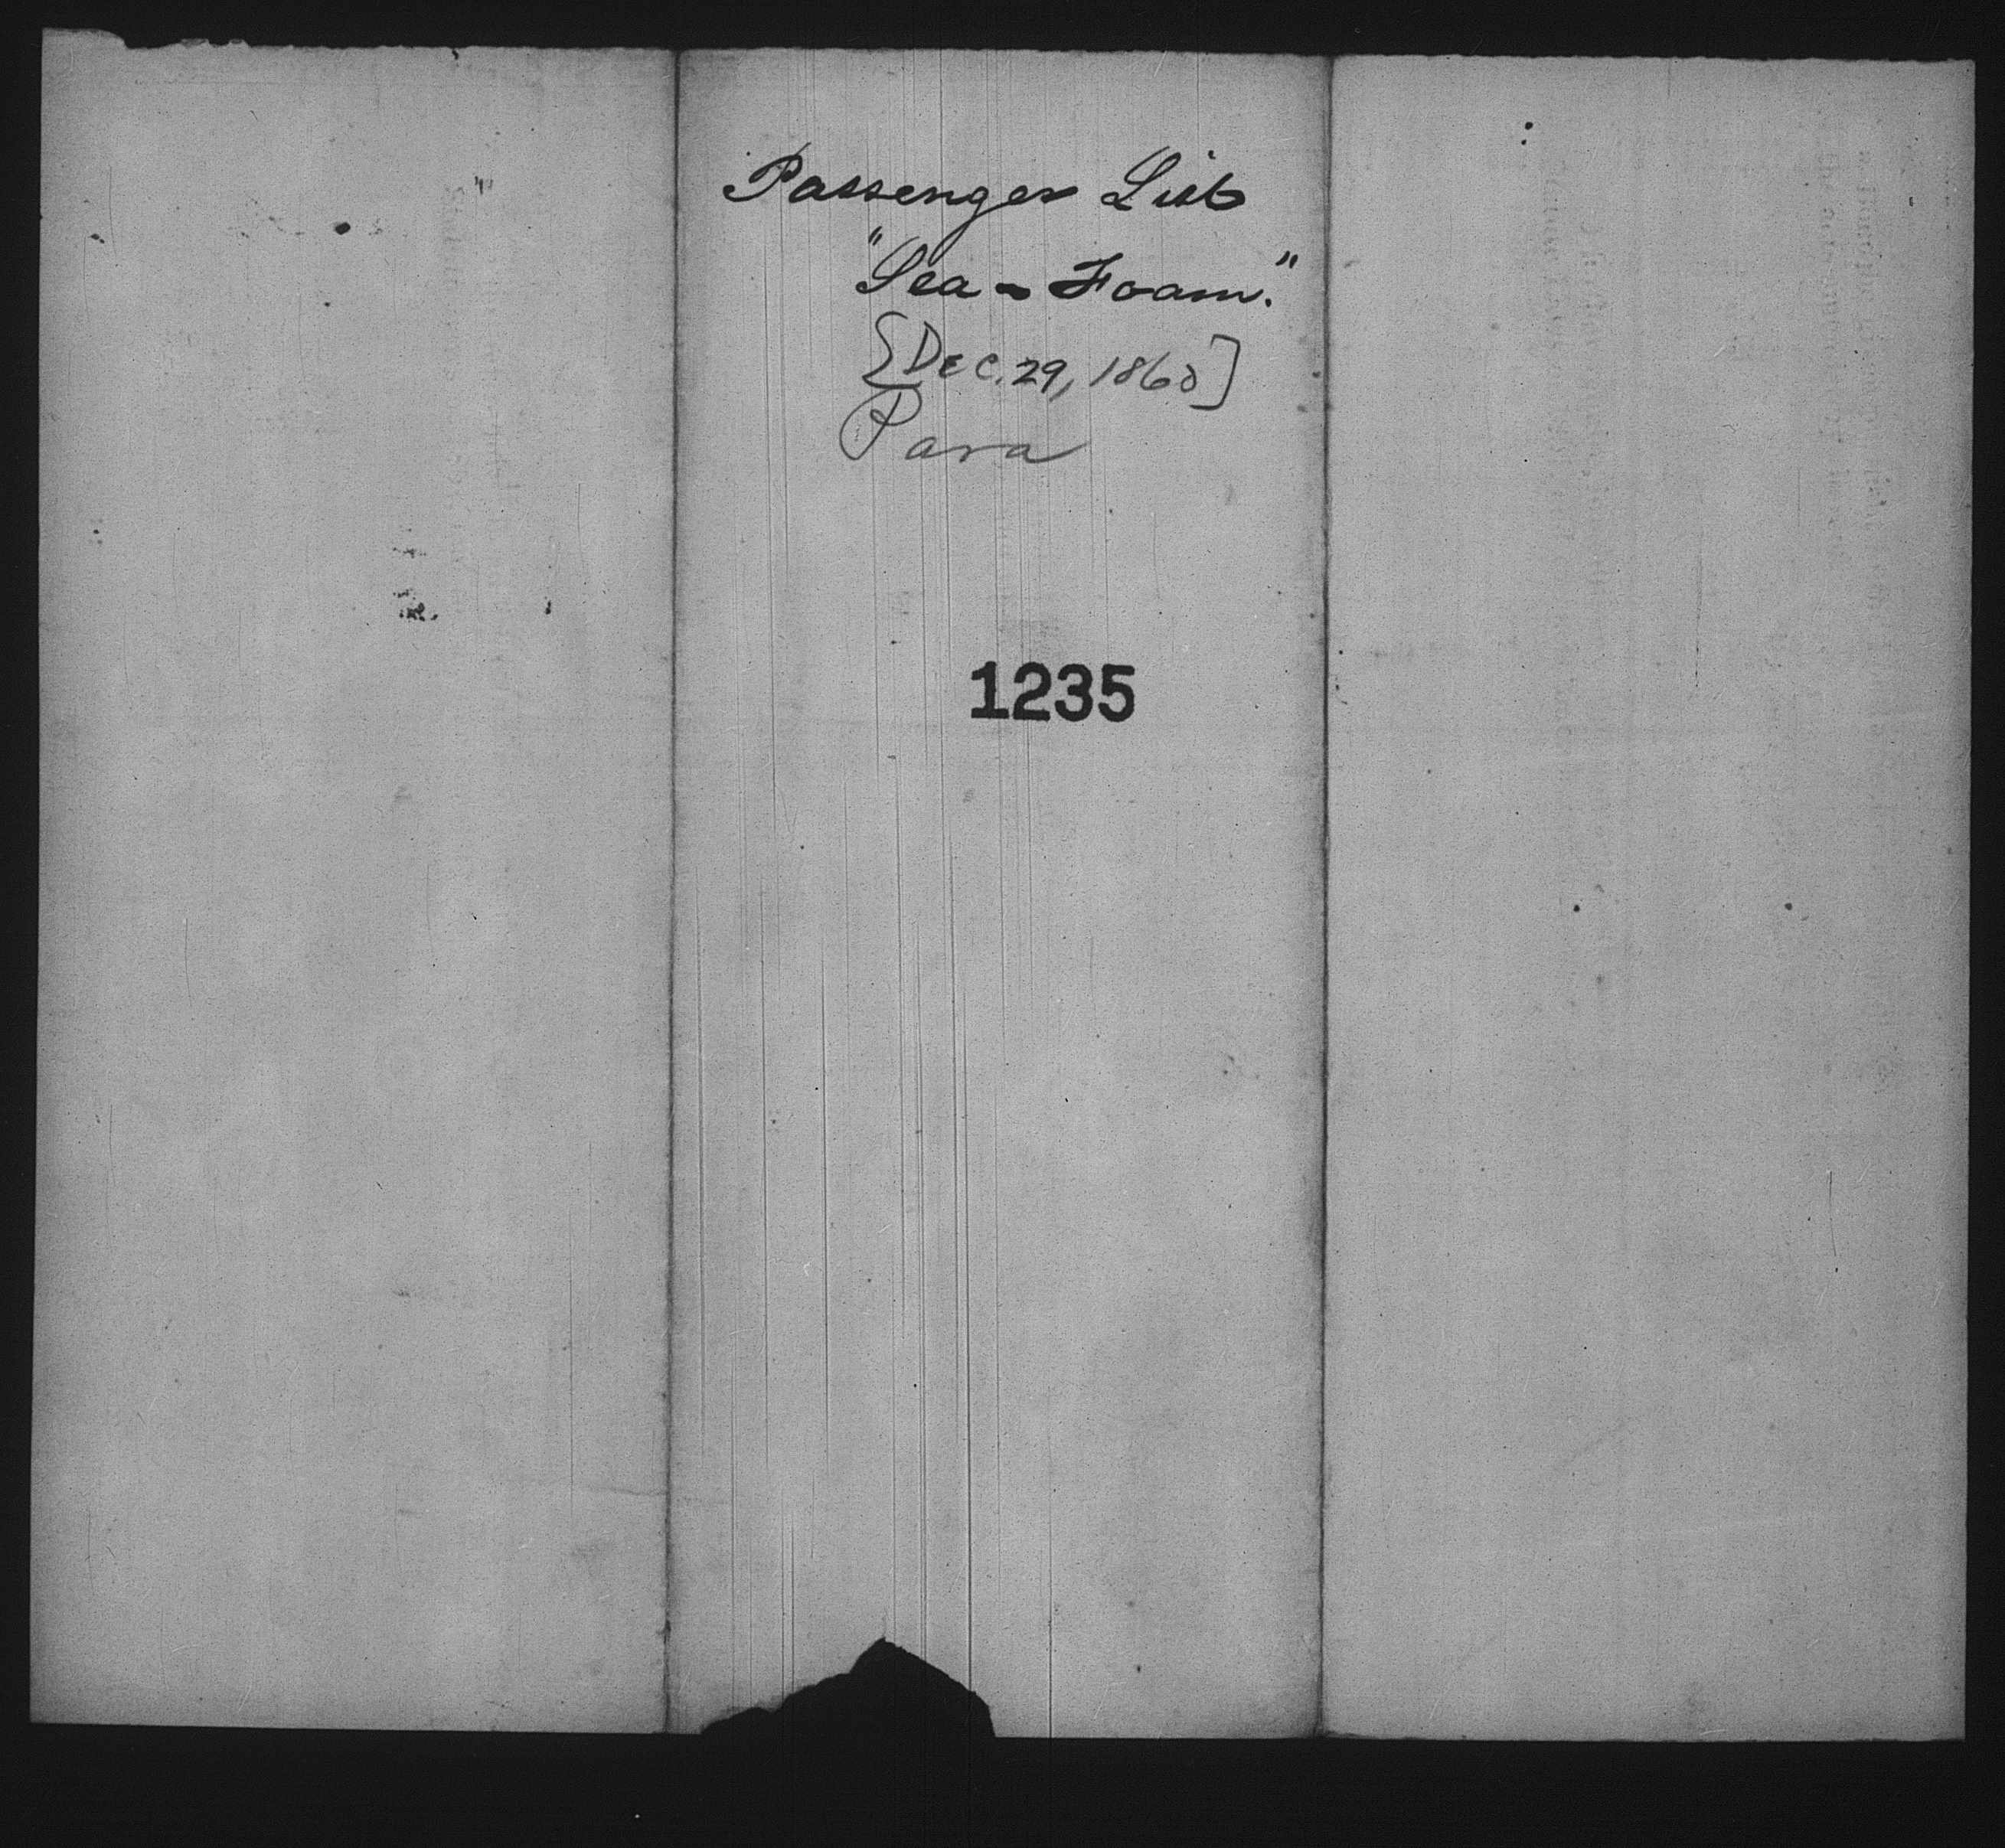 Passenger List
"Sea-Foam."
[Dec. 29, 1860]
Para
1235